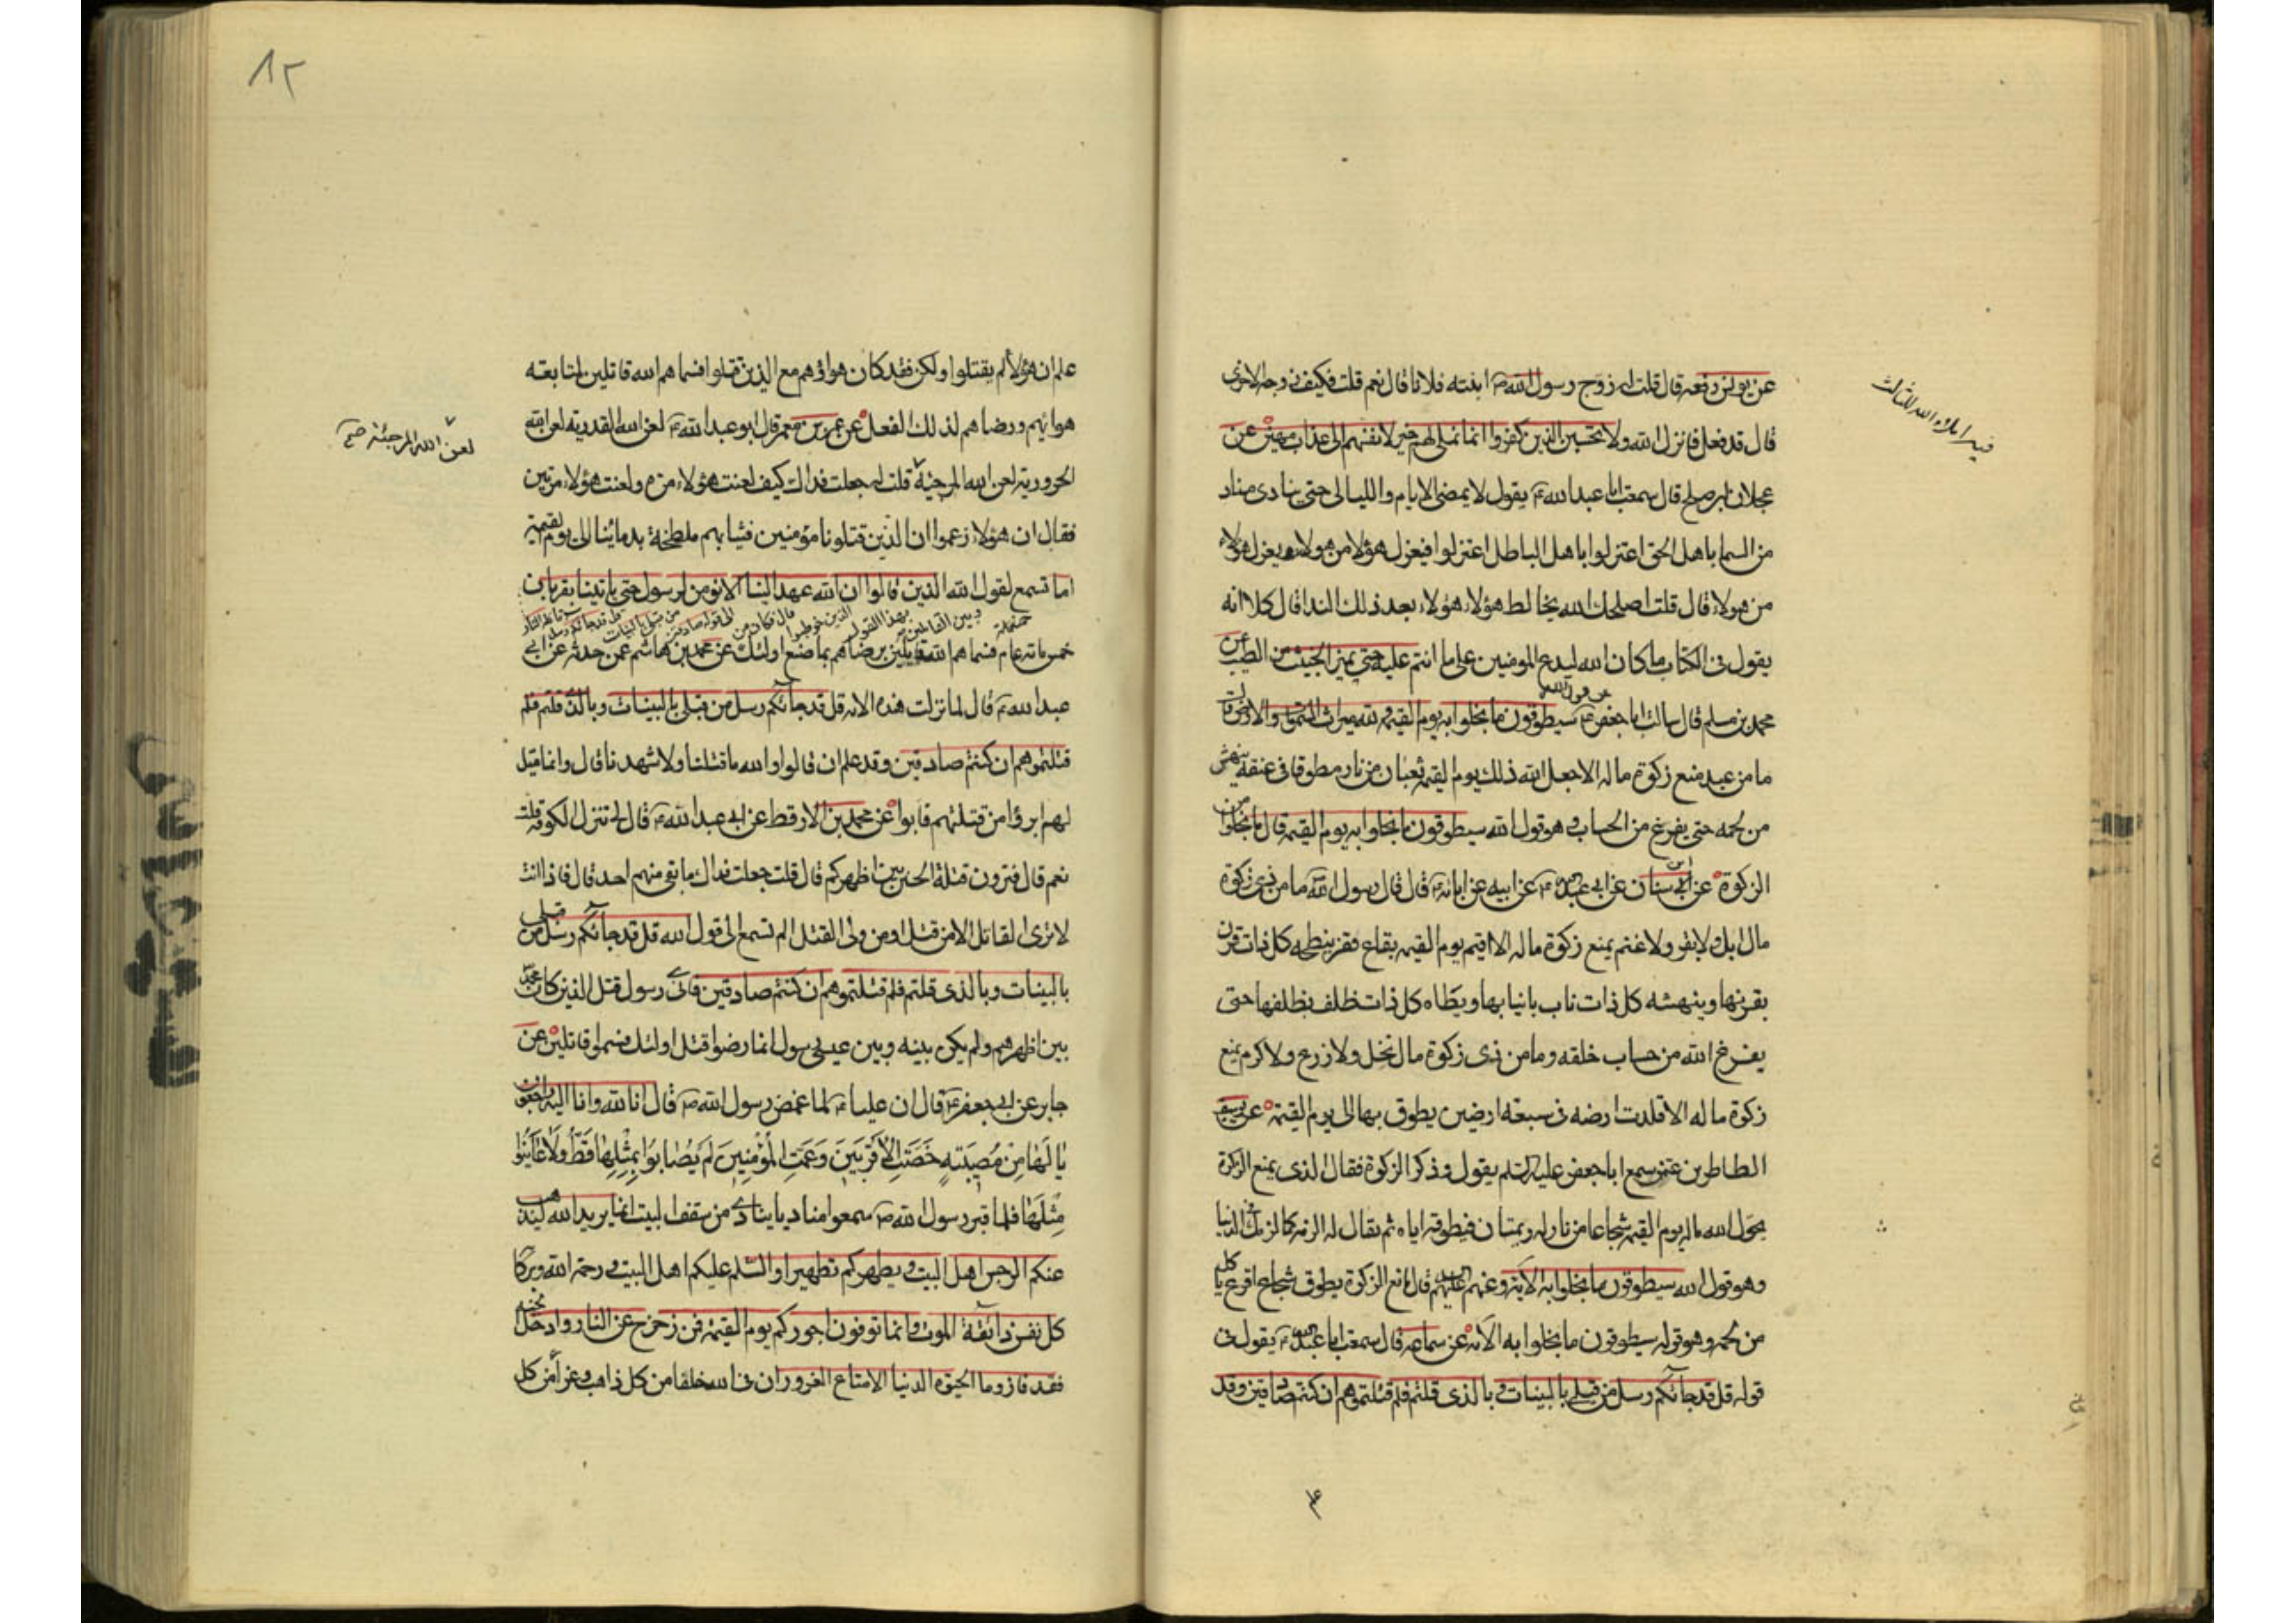 عن يونس رفعه قال قلت له زوج رسول الله ص ابنته فلانا قال نعم قلت فكيف زوجه الاخرى
قال قد فعل فانزل الله ولا تحسبن الذين كفروا انما نملى لهم خير لانفسهم الى عذاب مهين عن
عجلان ابى صلح قال سمعت ابا عبد الله ع يقول لا يمضى الايام والليالى حتى ينادى مناد
من السما يا اهل الحق اعتزلوا يا اهل الباطل اعتزلوا فيعزل هؤلا من هولاء ويعزل هولاء
من هولاء قال قلت اصلحك الله يخالط هؤلاء هؤلاء بعد ذلك الندا قال كلا انه
يقول فى الكتاب ما كان الله ليدع المومنين على ما انتم عليه حتى يميز الخبيث من الطيب عن
عن قول الله
محمد بن مسلم قال سالت ابا جعفر ع سيطوقون ما بخلوا به يوم القيمة ولله ميراث السموات والارض قال
ما من عبد منع زكوة ماله الا جعل الله ذلك يوم القيمة ثعبان من نار مطوقا فى عنقه ينهش
من لحمه حتى يفرغ من الحساب وهو قول الله سيطوقون ما بخلوا به يوم القيمة قال ما بخلوا من
الزكوة عن ابن سنان عن ابى عبد الله ع عن ابيه عن ابائه ع قال قال رسول الله ص ما من ذى زكوة
مال ابل ولا بقر ولا غنم يمنع زكوة ماله الا اقيم يوم القيمة بقاع قفر ينطحه كل ذات قرن
بقرنها وينهشه كل ذات ناب بانيابها ويطاه كل ذات ظلف بظلفها حتى
يفرغ الله من حساب خلقه وما من ذى زكوة مال نخل ولا زرع ولا كرم يمنع
زكوة ماله الا قلدت ارضه فى سبعة ارضين يطوق بها الى يوم القيمة عن يوسف
الطاطرى عمن سمع ابا جعفر عليه السلم يقول وذكر الزكوة فقال الذى يمنع الزكوة
يحول الله ماله يوم القيمة شجاعا من نار له ريمتان فيطوقه اياه ثم يقال له الزمه كما لزمك فى الدنيا
وهو قول الله سيطوقون ما بخلوا به الآية وعنهم عليهم السلم قال مانع الزكوة يطوق شجاع اقرع ياكل
من لحمه وهو قوله سيطوقون ما بخلوا به الآية عن سماعة قال سمعت ابا عبد الله ع يقول فى
قوله قل قد جائكم رسل من قبلى بالبينات وبالذى قلتم فلم قتلتموهم ان كنتم صادقين وقد
٨٢
علم ان هؤلا لم يقتلوا ولكن فقد كان هواؤهم مع الذين قتلوا فسماهم الله قاتلين لمتابعة
هوائهم ورضاهم لذلك الفعل عن عمر بن معمر قال ابو عبد الله ع لعن الله القدرية لعن الله
لعن الله المرجئة صح
الحرورية لعن الله المرجئة قلت له جعلت فداك كيف لعنت هؤلاء مرة ولعنت هؤلاء مرتين
فقال ان هؤلاء زعموا ان الذين قتلونا مؤمنين فثيابهم ملطخة بدمائنا الى يوم القيمة
اما تسمع لقول الله الذين قالوا ان الله عهد الينا الا نؤمن لرسول حتى ياتينا بقربان
خمس مائة عام فسماهم الله قاتلين برضاهم بما صنع اولئك عن محمد بن هاشم عمن حدثه عن ابى
عبد الله ع قال لما نزلت هذه الاية قل قد جائكم رسل من قبلى بالبينات وبالذى قلتم فلم
قتلتموهم ان كنتم صادقين وقد علم ان قالوا والله ما قتلنا ولا شهدنا قال وانما قيل
لهم ابرؤا من قتلتهم فابوا عن محمد بن الارقط عن ابى عبد الله ع قال لى تنزل الكوفة قلت
نعم قال فترون قتلة الحسين بين اظهركم قال قلت جعلت فداك ما بقى منهم احد قال فاذا انت
لا ترى القاتل الا من قتل او من ولى القتل الم تسمع الى قول الله قل قد جائكم رسل من قبلى
بالبينات وبالذى قلتم فلم قتلتموهم ان كنتم صادقين فاى رسول قتل الذين كان محمد ص
بين اظهرهم ولم يكن بينه وبين عيسى رسول انما رضوا قتل اولئك فسموا قاتلين عن
جابر عن ابى جعفر ع قال ان عليا ع لما غمض رسول الله ص قال انا لله وانا اليه راجعون
يَا لَهَا مِنْ مُصِيبَةٍ خَصَّتِ الْأَقْرَبِينَ وَعَمَّتِ الْمُؤْمِنِينَ لَمْ يُصَابُوا بِمِثْلِهَا قَطُّ وَلَا عَايَنُوا
مِثْلَهَا فلما قبر رسول الله ص سمعوا مناديا ينادى من سقف البيت انما يريد الله ليذهب
عنكم الرجس اهل البيت ويطهركم تطهيرا والسلم عليكم اهل البيت ورحمة الله وبركا
كل نفس ذائقة الموت وانما توفون اجوركم يوم القيمة فمن زحزح عن النار وادخل الجنة
فقد فاز وما الحيوة الدنيا الا متاع الغرور ان فى الله خلفا من كل ذاهب وعزاء من كل